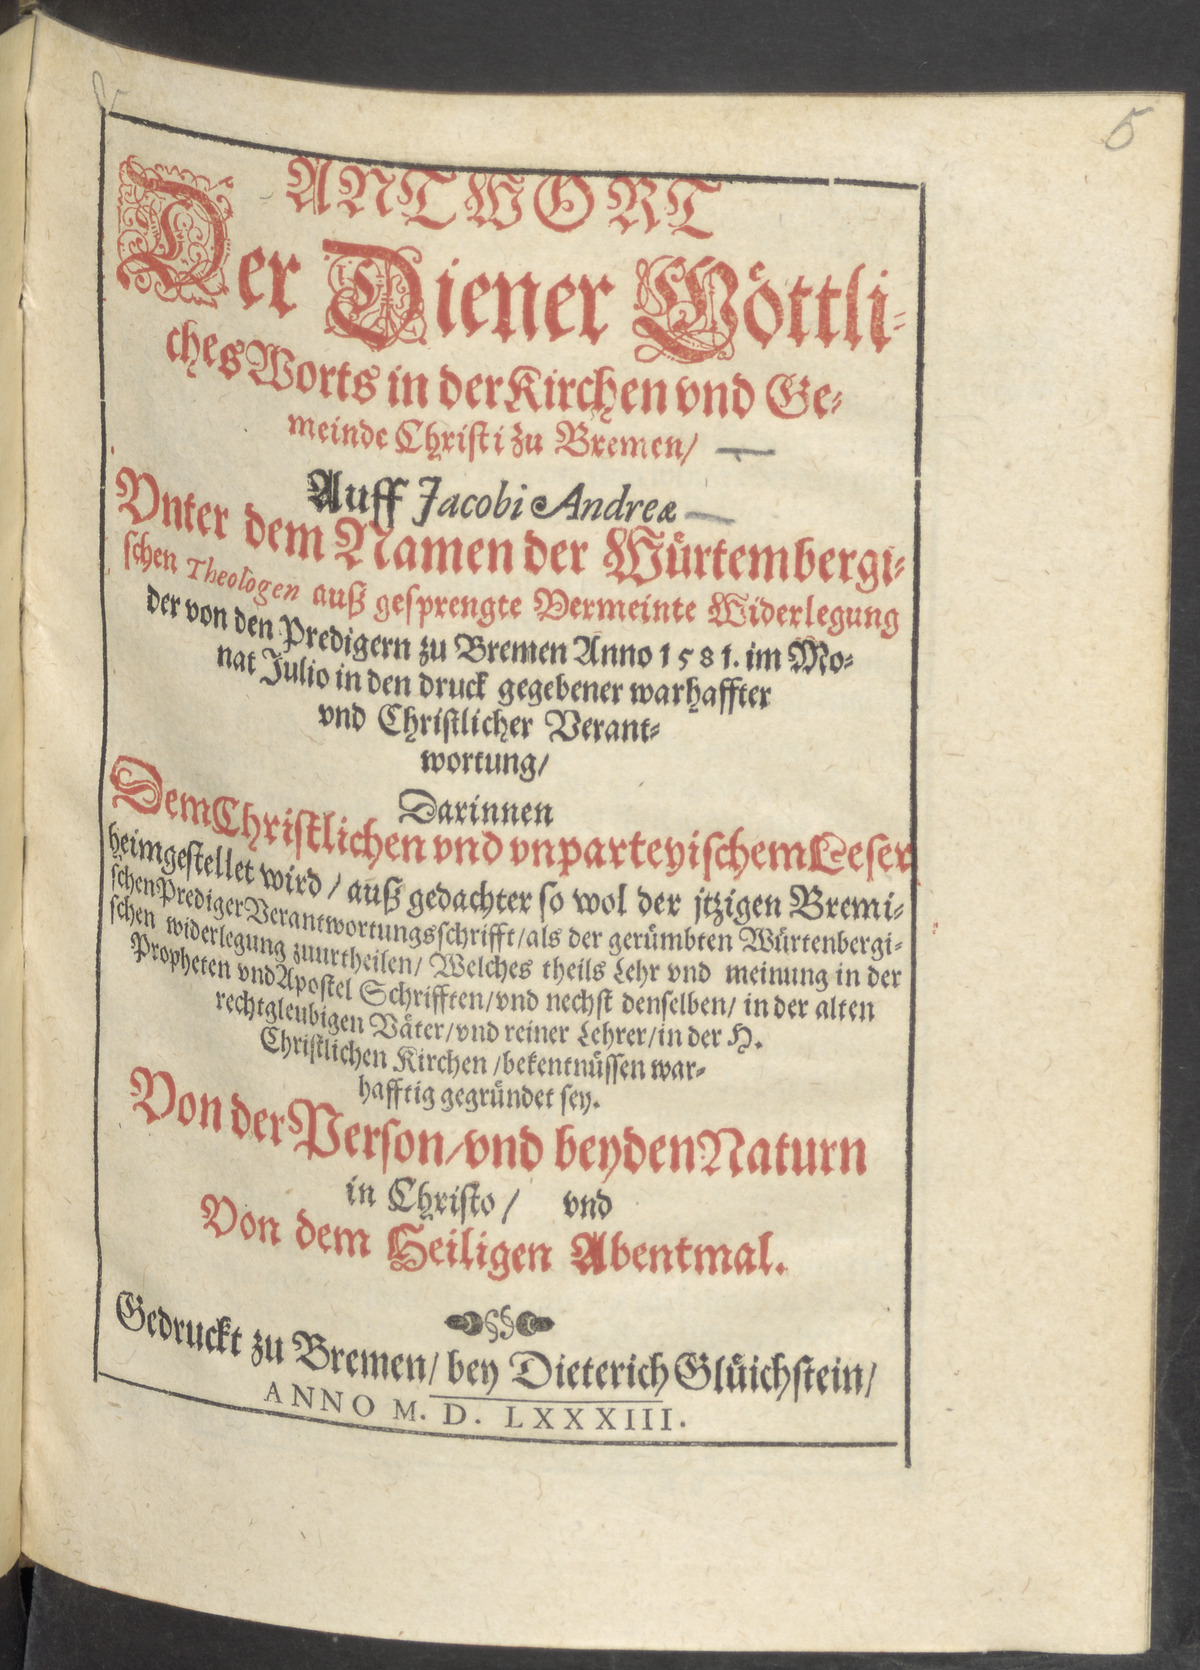 5
ANTWORT
Der Diener Göttli-
ches Worts in der Kirchen vnd Ge-
meinde Christi zu Bremen/
Auff Jacobi Andreæ
Vnter dem Namen der Würtembergi-
schen Theologen auß gesprengte Vermeinte Widerlegung
der von den Predigern zu Bremen Anno 1581. im Mo-
nat Julio in den druck gegebener warhaffter
vnd Christlicher Verant-
wortung/
Darinnen
Dem Christlichen vnd vnparteyischem Leser
heimgestellet wird / auß gedachter so wol der jtzigen Bremi-
schen Prediger Verantwortungsschrifft/ als der gerümbten Würtenbergi-
schen widerlegung zuurtheilen/ Welches theils Lehr vnd meinung in der
Propheten vnd Apostel Schrifften/ vnd nechst denselben/ in der alten
rechtgleubigen Väter/ vnd reiner Lehrer/ in der H.
Christlichen Kirchen / bekentnüssen war-
hafftig gegründet sey.
Von der Person/ vnd beyden Naturn
in Christo/ vnd
Von dem Heiligen Abentmal.
Gedruckt zu Bremen/ bey Dieterich Glüichstein/
ANNO M. D. LXXXIII.